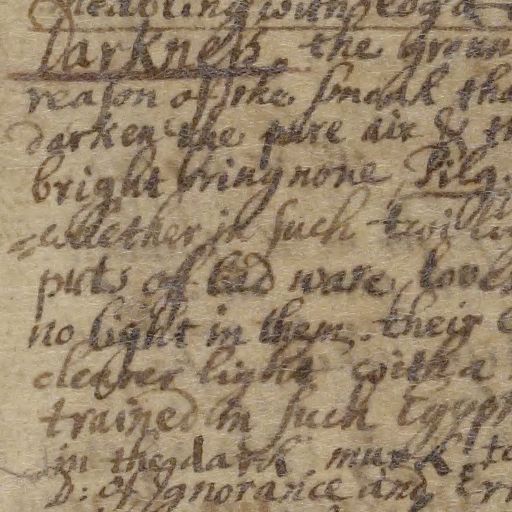 Darkness. the groun
reason of the smoak tha
darken the pure air & th
bright bring none Pilg.
whether in such twilig
puts of bad ware, loves
no light in them. their e
clearer light with a
trained in such Egypt
in the dark murk to
D: of Ignorance and Err